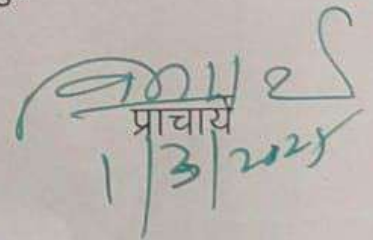 प्राचार्य
1/3/2025